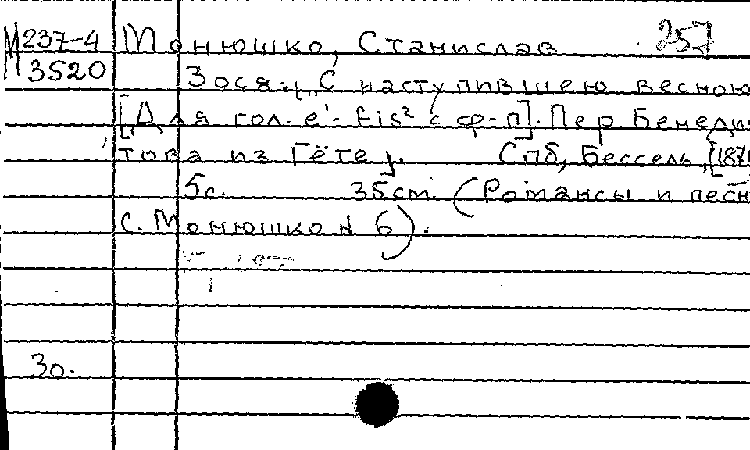 М237-4 Монюшко, Станислав 257
3520 Зося: „С наступившею весною
[Для гол. e'- fis² с ф-п]. Пер Бенедик
това из Гёте]. Спб, Бессель, [187
5с. 35см. (Романсы и песн
С. Монюшко № 6).
30.